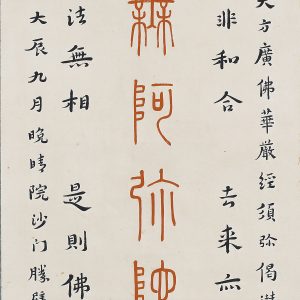 大方廣佛華嚴經須弥偈
非和合 去来亦
無阿弥陀
法無相 是則佛
大辰九月晚晴院沙门勝